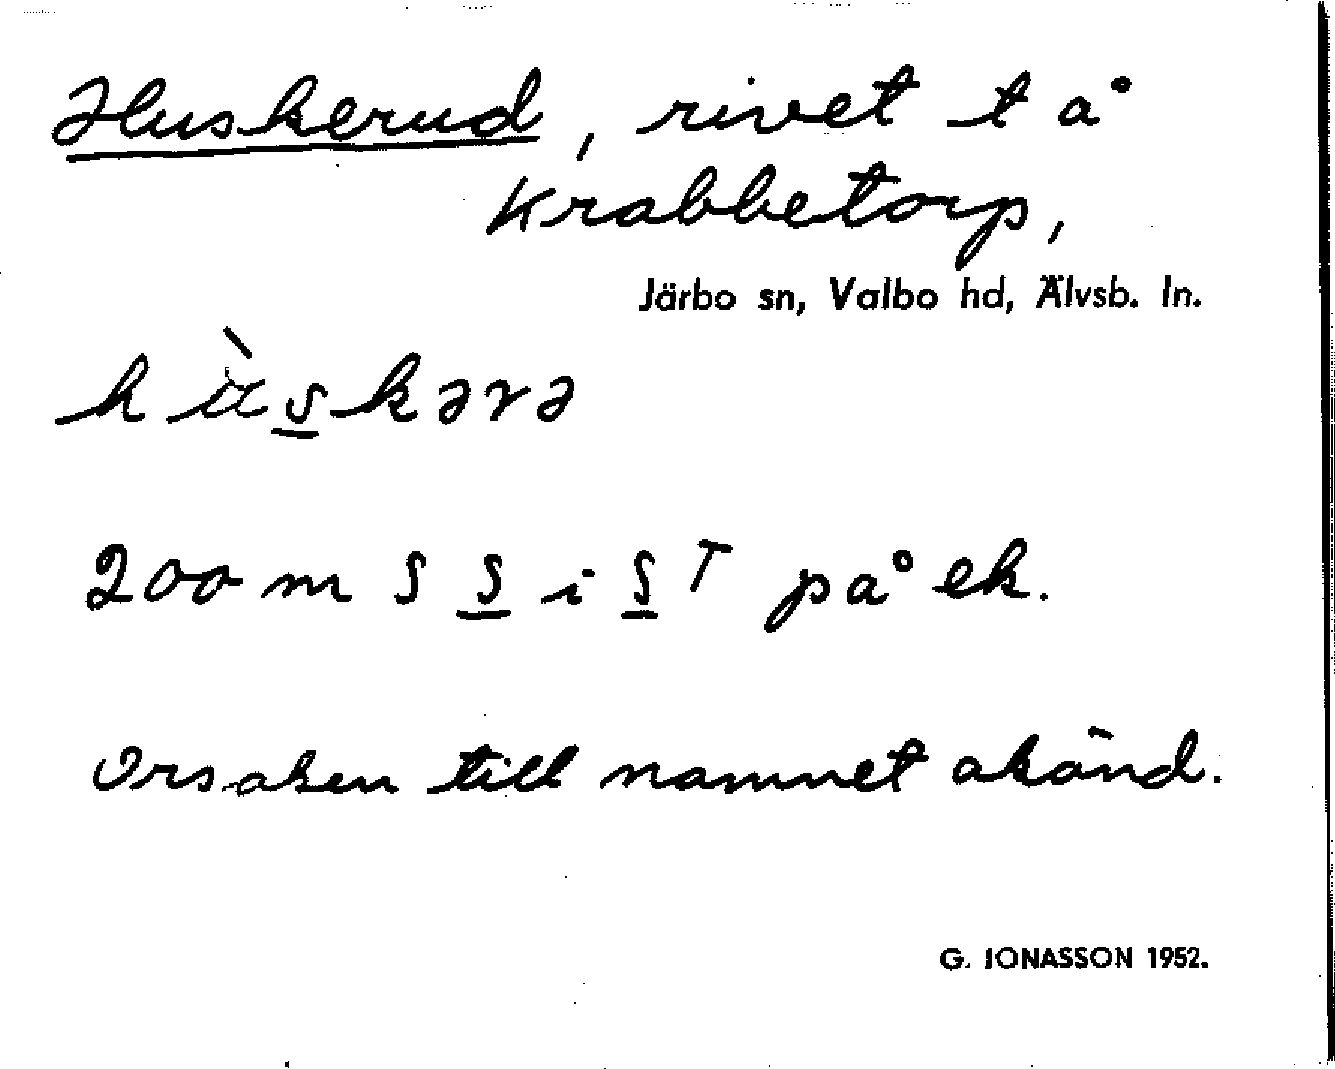 Huskerud, rivet t å
Krabbetorp,
Järbo sn, Valbo hd, Älvsb. ln.
200 m S S i S T på ek.
Orsaken till namnet akänd.
G. JONASSON 1952.